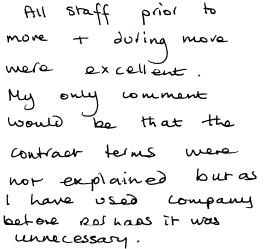 All staff prior to
move + during move
were excellent.
My only comment
would be that the
contract terms were
not explained but as
I have used company
before perhaps it was
unnecessary.